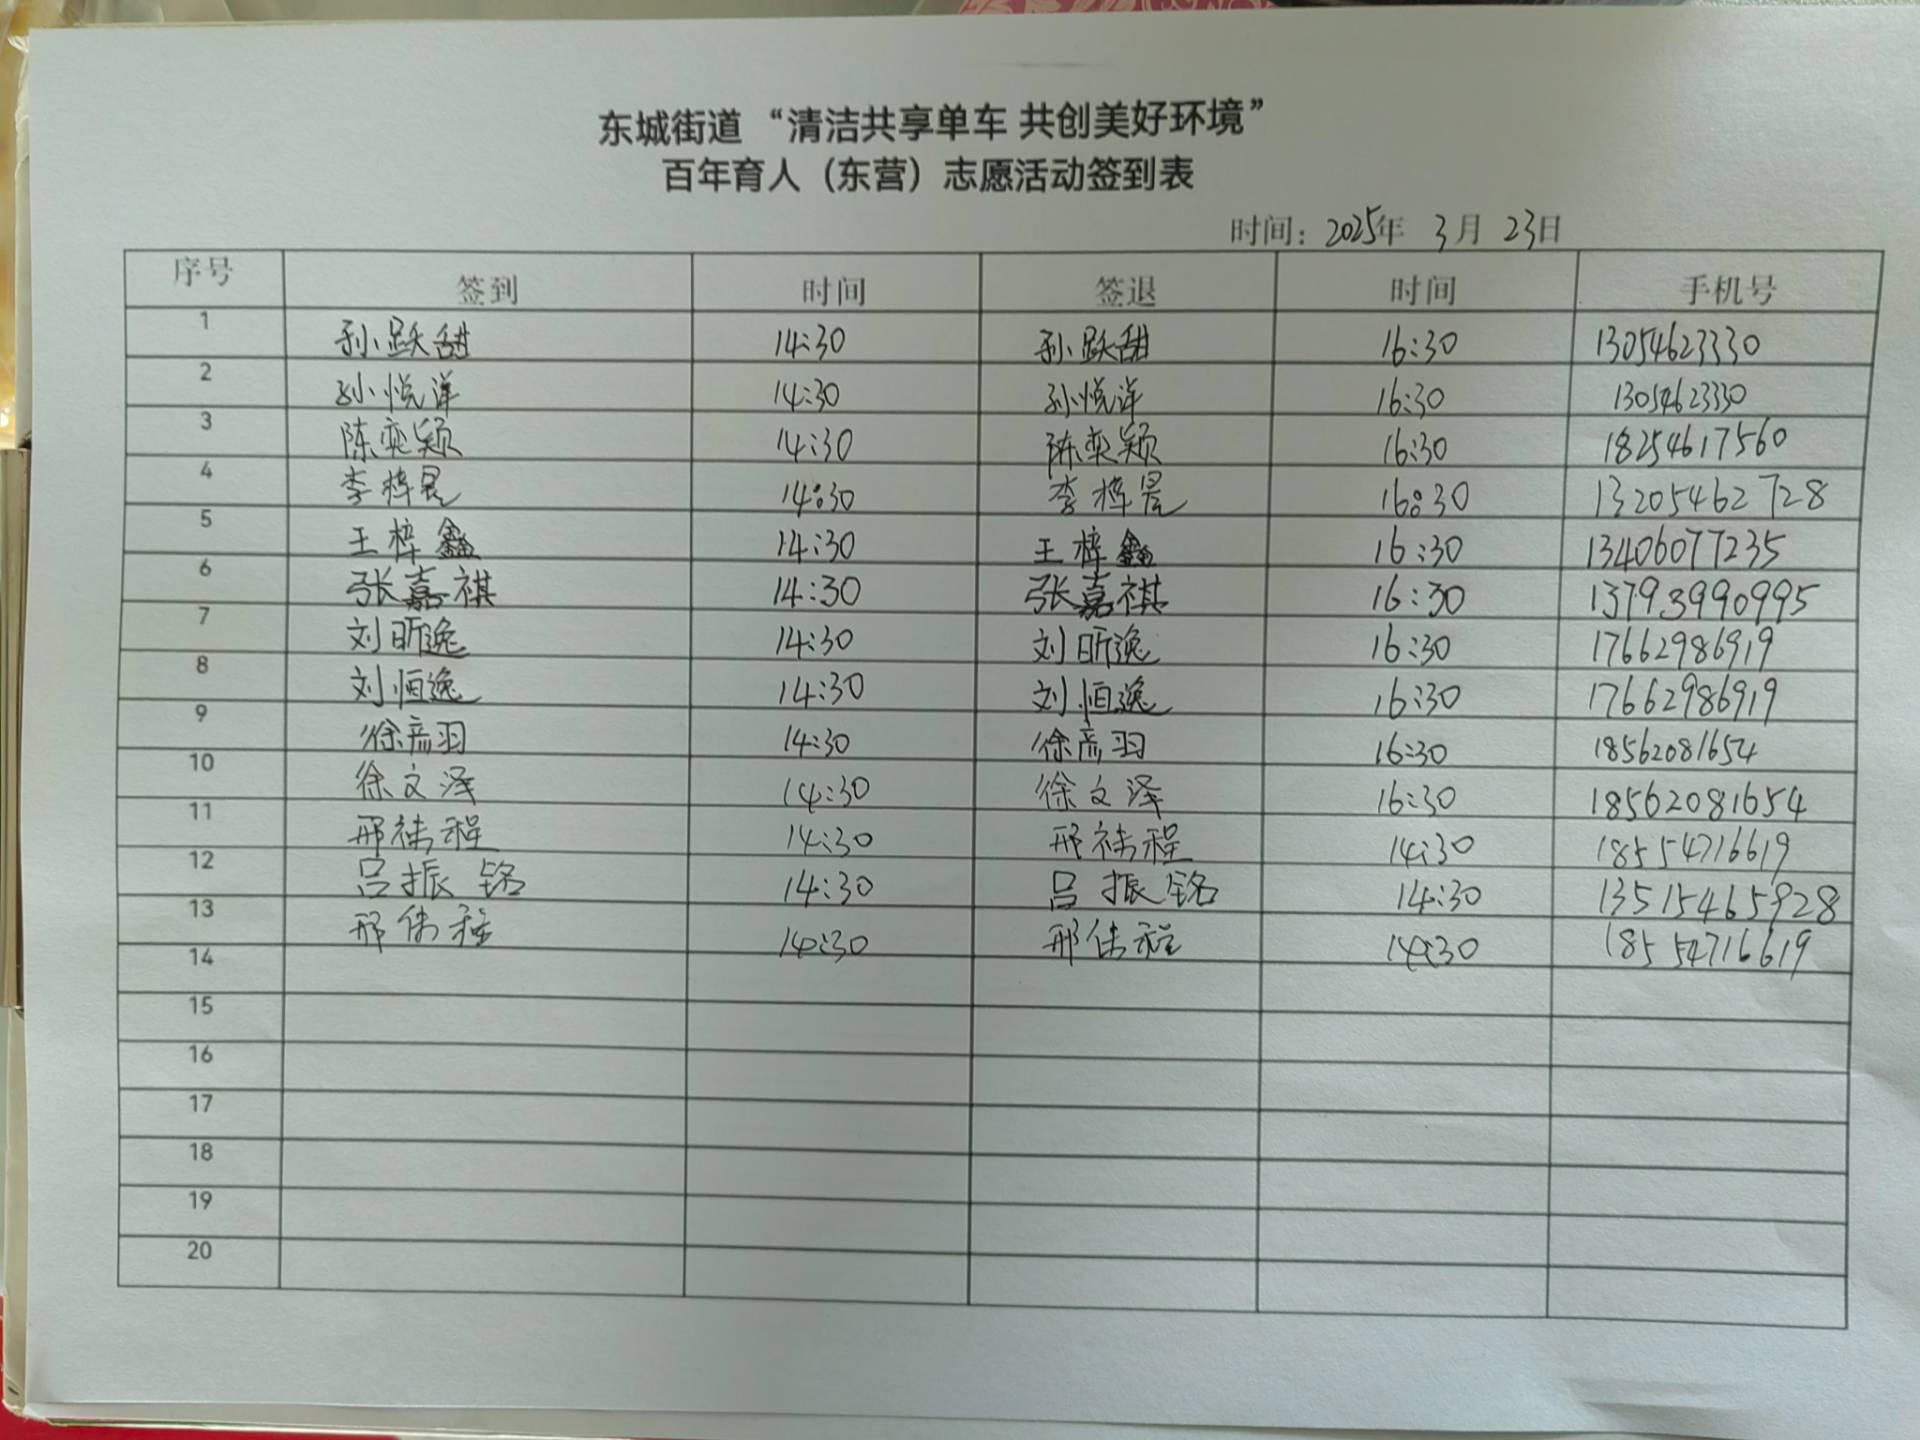 东城街道 “清洁共享单车 共创美好环境”
百年育人（东营）志愿活动签到表
时间：2025年 3月 23日
序号 签到 时间 签退 时间 手机号
1 孙跃甜 14:30 孙跃甜 16:30 13054623330
2 孙悦洋 14:30 孙悦洋 16:30 13054623330
3 陈奕颖 14:30 陈奕颖 16:30 18254617560
4 李梓晨 14:30 李梓晨 16:30 13205462728
5 王梓鑫 14:30 王梓鑫 16:30 13406077235
6 张嘉祺 14:30 张嘉祺 16:30 13793990995
7 刘昕逸 14:30 刘昕逸 16:30 17662986919
8 刘恒逸 14:30 刘恒逸 16:30 17662986919
9 徐彦羽 14:30 徐彦羽 16:30 18562081654
10 徐文泽 14:30 徐文泽 16:30 18562081654
11 邢祎程 14:30 邢祎程 14:30 18554716619
12 吕振铭 14:30 吕振铭 14:30 13515465928
13 邢伟程 14:30 邢伟程 14:30 18554716619
14
15
16
17
18
19
20